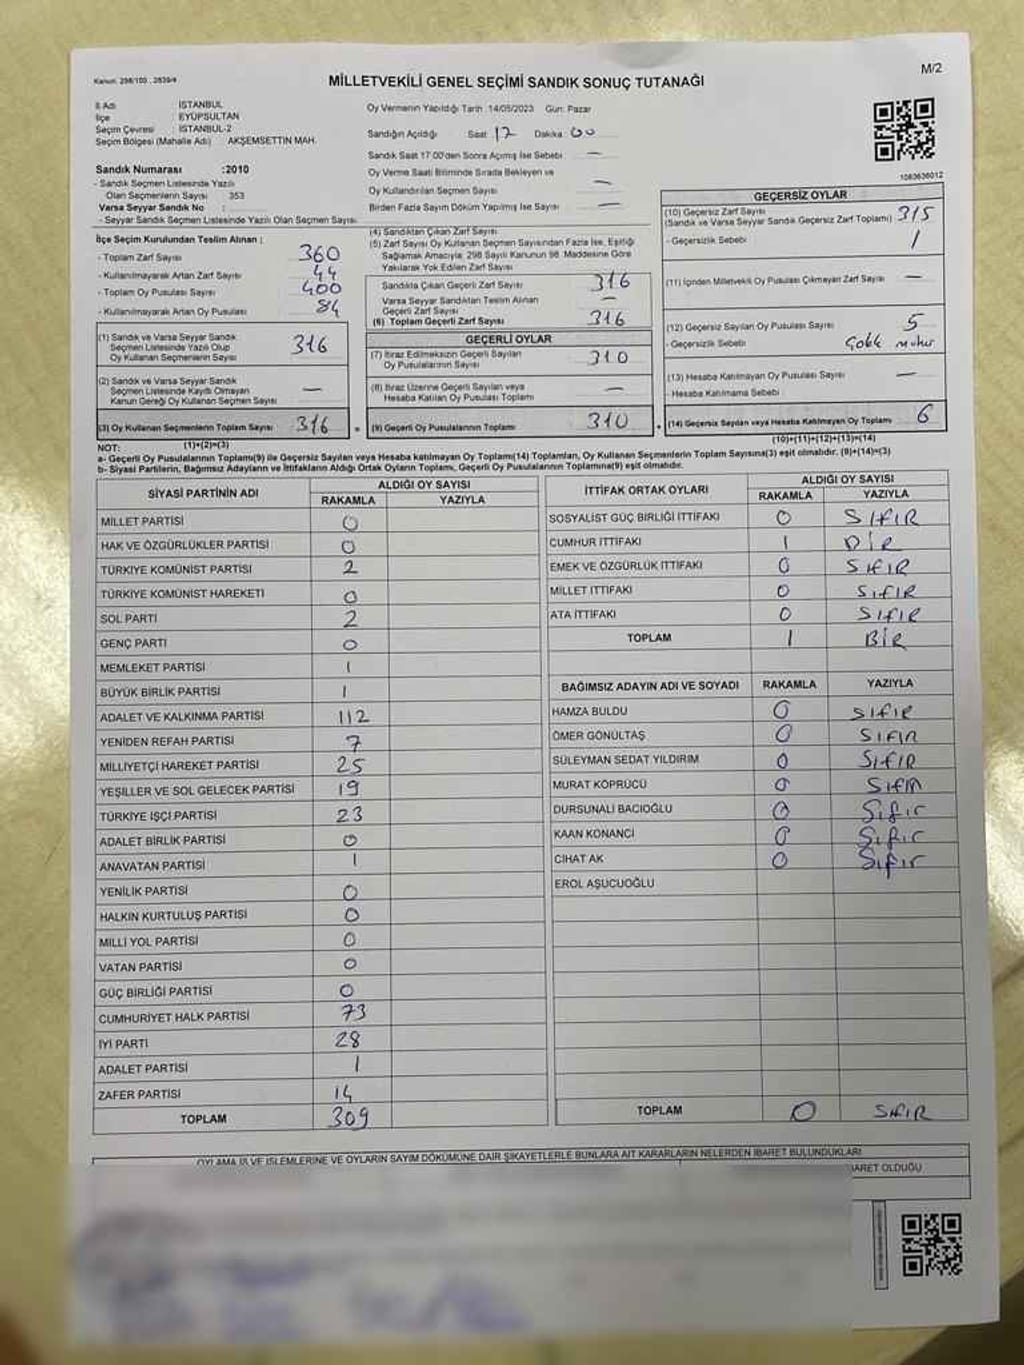 Kanun: 298/100 , 2839/4
MİLLETVEKİLİ GENEL SEÇİMİ SANDIK SONUÇ TUTANAĞI
M/2
İl Adı : İSTANBUL
İlçe : EYÜPSULTAN
Seçim Çevresi : İSTANBUL-2
Seçim Bölgesi (Mahalle Adı) : AKŞEMSETTİN MAH.
Sandık Numarası :2010
- Sandık Seçmen Listesinde Yazılı
Olan Seçmenlerin Sayısı 353
Varsa Seyyar Sandık No :
- Seyyar Sandık Seçmen Listesinde Yazılı Olan Seçmen Sayısı
Oy Vermenin Yapıldığı Tarih :14/05/2023 Gün: Pazar
Sandığın Açıldığı Saat 17 Dakika 00
Sandık Saat 17:00'den Sonra Açılmış İse Sebebi —
Oy Verme Saati Bitiminde Sırada Bekleyen ve
Oy Kullandırılan Seçmen Sayısı —
Birden Fazla Sayım Döküm Yapılmış İse Sayısı —
1083636012
İlçe Seçim Kurulundan Teslim Alınan :
- Toplam Zarf Sayısı 360
- Kullanılmayarak Artan Zarf Sayısı 44
- Toplam Oy Pusulası Sayısı 400
- Kullanılmayarak Artan Oy Pusulası 84
(1) Sandık ve Varsa Seyyar Sandık
Seçmen Listesinde Yazılı Olup
Oy Kullanan Seçmenlerin Sayısı 316
(2) Sandık ve Varsa Seyyar Sandık
Seçmen Listesinde Kayıtlı Olmayan
Kanun Gereği Oy Kullanan Seçmen Sayısı —
(3) Oy Kullanan Seçmenlerin Toplam Sayısı 316
(1)+(2)=(3)
(4) Sandıktan Çıkan Zarf Sayısı
(5) Zarf Sayısı Oy Kullanan Seçmen Sayısından Fazla İse, Eşitliği
Sağlamak Amacıyla; 298 Sayılı Kanunun 98. Maddesine Göre
Yakılarak Yok Edilen Zarf Sayısı
Sandıkta Çıkan Geçerli Zarf Sayısı 316
Varsa Seyyar Sandıktan Teslim Alınan
Geçerli Zarf Sayısı —
(6) Toplam Geçerli Zarf Sayısı 316
GEÇERLİ OYLAR
(7) İtiraz Edilmeksizin Geçerli Sayılan
Oy Pusulalarının Sayısı 310
(8) İtiraz Üzerine Geçerli Sayılan veya
Hesaba Katılan Oy Pusulası Toplamı —
(9) Geçerli Oy Pusulalarının Toplamı 310
GEÇERSİZ OYLAR
(10) Geçersiz Zarf Sayısı
(Sandık ve Varsa Seyyar Sandık Geçersiz Zarf Toplamı) 315
- Geçersizlik Sebebi 1
(11) İçinden Milletvekili Oy Pusulası Çıkmayan Zarf Sayısı —
(12) Geçersiz Sayılan Oy Pusulası Sayısı 5
- Geçersizlik Sebebi
(13) Hesaba Katılmayan Oy Pusulası Sayısı —
- Hesaba Katılmama Sebebi
(14) Geçersiz Sayılan veya Hesaba Katılmayan Oy Toplamı 6
(10)+(11)+(12)+(13)=(14)
NOT:
a- Geçerli Oy Pusulalarının Toplamı(9) ile Geçersiz Sayılan veya Hesaba katılmayan Oy Toplamı(14) Toplamları, Oy Kullanan Seçmenlerin Toplam Sayısına(3) eşit olmalıdır. (9)+(14)=(3)
b- Siyasi Partilerin, Bağımsız Adayların ve İttifakların Aldığı Ortak Oyların Toplamı, Geçerli Oy Pusulalarının Toplamına(9) eşit olmalıdır.
SİYASİ PARTİNİN ADI ALDIĞI OY SAYISI
RAKAMLA YAZIYLA
MİLLET PARTİSİ 0
HAK VE ÖZGÜRLÜKLER PARTİSİ 0
TÜRKİYE KOMÜNİST PARTİSİ 2
TÜRKİYE KOMÜNİST HAREKETİ 0
SOL PARTİ 2
GENÇ PARTİ 0
MEMLEKET PARTİSİ 1
BÜYÜK BİRLİK PARTİSİ 1
ADALET VE KALKINMA PARTİSİ 112
YENİDEN REFAH PARTİSİ 7
MİLLİYETÇİ HAREKET PARTİSİ 25
YEŞİLLER VE SOL GELECEK PARTİSİ 19
TÜRKİYE İŞÇİ PARTİSİ 23
ADALET BİRLİK PARTİSİ 0
ANAVATAN PARTİSİ 1
YENİLİK PARTİSİ 0
HALKIN KURTULUŞ PARTİSİ 0
MİLLİ YOL PARTİSİ 0
VATAN PARTİSİ 0
GÜÇ BİRLİĞİ PARTİSİ 0
CUMHURİYET HALK PARTİSİ 73
İYİ PARTİ 28
ADALET PARTİSİ 1
ZAFER PARTİSİ 14
TOPLAM 309
İTTİFAK ORTAK OYLARI ALDIĞI OY SAYISI
RAKAMLA YAZIYLA
SOSYALİST GÜÇ BİRLİĞİ İTTİFAKI 0 SIFIR
CUMHUR İTTİFAKI 1 BİR
EMEK VE ÖZGÜRLÜK İTTİFAKI 0 SIFIR
MİLLET İTTİFAKI 0 SIFIR
ATA İTTİFAKI 0 SIFIR
TOPLAM 1 BİR
BAĞIMSIZ ADAYIN ADI VE SOYADI RAKAMLA YAZIYLA
HAMZA BULDU 0 SIFIR
ÖMER GÖNÜLTAŞ 0 SIFIR
SÜLEYMAN SEDAT YILDIRIM 0 SIFIR
MURAT KÖPRÜCÜ 0 SIFIR
DURSUNALİ BACIOĞLU 0 Sıfır
KAAN KONANCI 0 Sıfır
CİHAT AK 0 Sıfır
EROL AŞUCUOĞLU
TOPLAM 0 SIFIR
OYLAMA İŞ VE İŞLEMLERİNE VE OYLARIN SAYIM DÖKÜMÜNE DAİR ŞİKAYETLERLE BUNLARA AİT KARARLARIN NELERDEN İBARET BULUNDUKLARI
BARET OLDUĞU